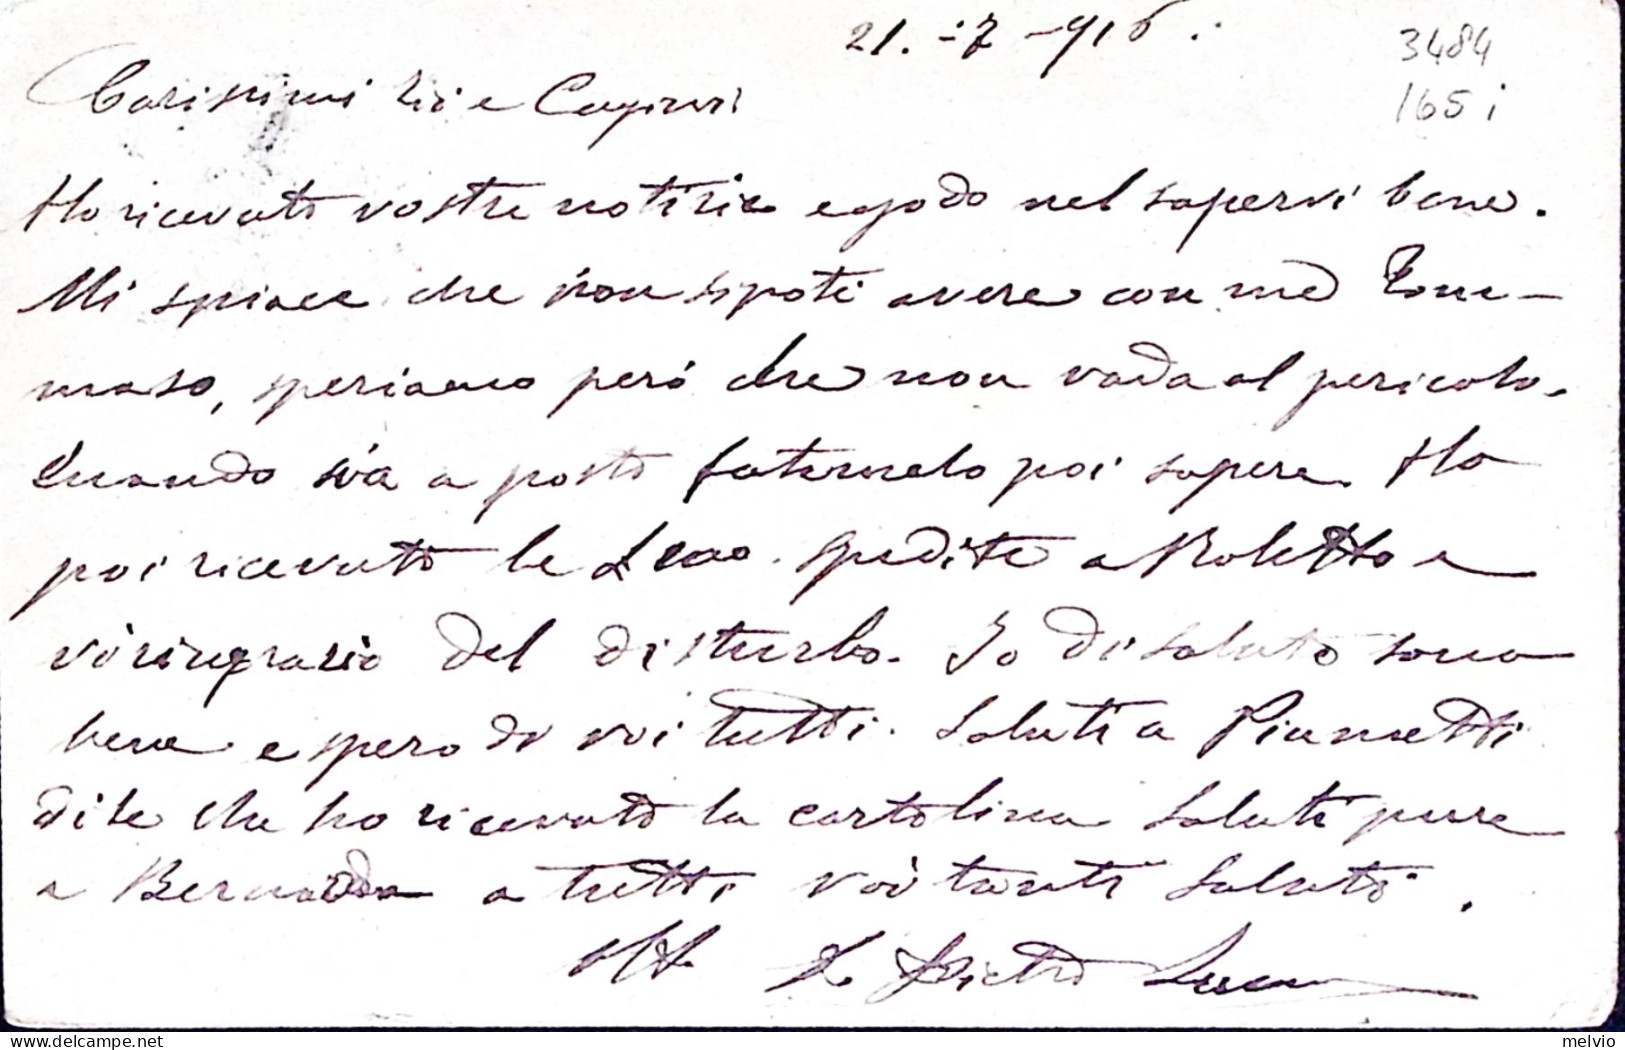 21.-7-916.
3484
165 i
Carissimi Zii e Cugini
Ho ricevuto vostre notizie e godo nel sapervi bene.
Mi spiace che non si poté avere con me Tom-
maso, speriamo però che non vada al pericolo.
Quando sia a posto fatemelo poi sapere. Ho
poi ricevuto le spedite a Roletto e
vi ringrazio del disturbo. Io di saluto sono
bene e spero di voi tutti. Saluti a
dite che ho ricevuto la cartolina Saluti pure
a a tutti voi tanti saluti.
Pietro
melvio